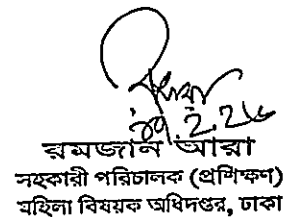 রমজান আরা
সহকারী পরিচালক (প্রশিক্ষণ)
মহিলা বিষয়ক অধিদপ্তর, ঢাকা